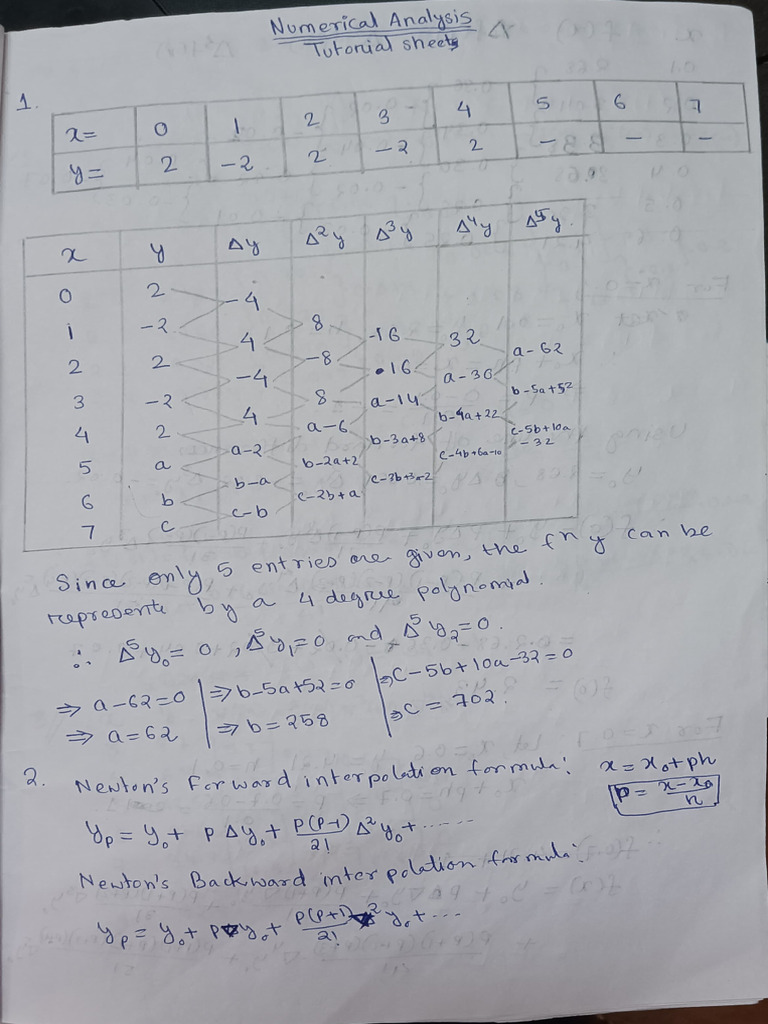 Numerical Analysis
Tutorial sheets Δ
1.
x= 0 1 2 3 4 5 6 7
y= 2 -2 2 -2 2 - - -
x y Δy Δ²y Δ³y Δ⁴y Δ⁵y.
0 2
-4
1 -2 8
4 -16
2 2 -8 32
-4 16 a-62
3 -2 8 a-30
4 a-14 b-5a+52
4 2 a-6 b-4a+22
a-2 b-3a+8 c-5b+10a-32
5 a b-2a+2 c-4b+6a-10
b-a c-3b+3a-2
6 b c-2b+a
c-b
7 c
Since only 5 entries are given, the fn y can be
represente by a 4 degree polynomial.
∴ Δ⁵y₀ = 0, Δ⁵y₁ = 0 and Δ⁵y₂ = 0.
⇒ a-62=0 | ⇒ b-5a+52=0 | ⇒ c-5b+10a-32=0
⇒ a=62 | ⇒ b=258 | ⇒ c = 702.
2. Newton's Forward interpolation formula: x = x₀+ph
p = (x-x₀)/h
yₚ = y₀ + p Δy₀ + p(p-1)/2! Δ²y₀ + ......
Newton's Backward interpolation formula:
yₚ = y₀ + p∇y₀ + p(p+1)/2! ∇²y₀ + ...